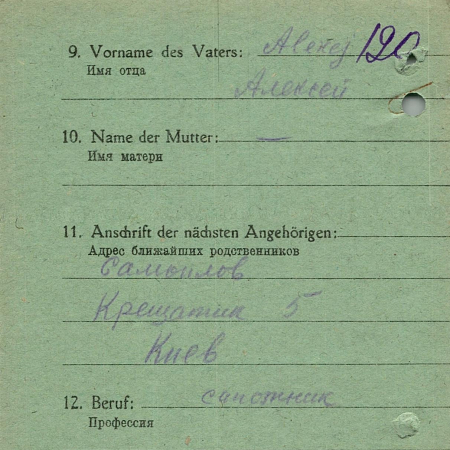 9. Vorname des Vaters: Alexej 120
Имя отца
Алексей
10. Name der Mutter: —
Имя матери
11. Anschrift der nächsten Angehörigen:
Адрес ближайших родственников
Самойлов
Крещатик 5
Киев
12. Beruf: сапожник
Профессия